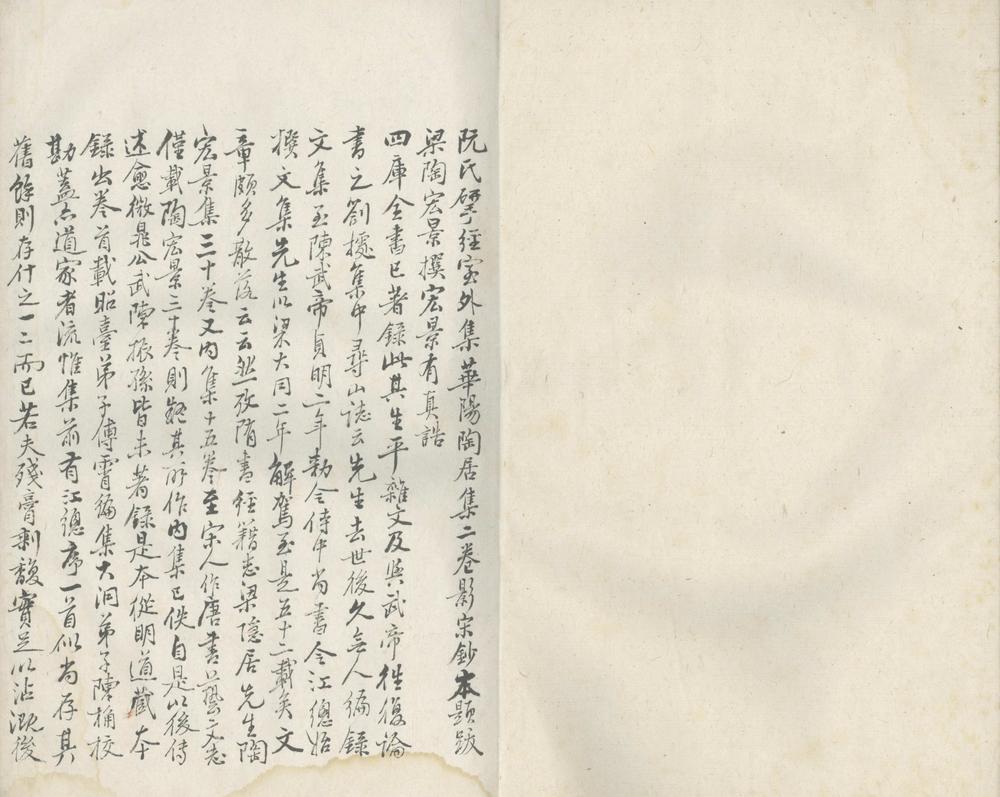 阮氏揅經室外集華陽陶居集二卷影宋鈔本題跋
梁陶宏景撰宏景有真誥
四庫全書已著錄此其生平雜文及與武帝往復論
書之劄據集中尋山誌云先生去世後久無人編錄
文集至陳武帝貞明二年勅令侍中尚書令江總始
撰文集先生以梁大同二年解駕至是五十二載矣文
章頗多散落云云然攷隋書經籍志梁隱居先生陶
宏景集三十卷又內集十五卷至宋人作唐書藝文志
僅載陶宏景三十卷則疑其所作內集已佚自是以後傳
述愈微晁公武陳振孫皆未著錄是本從明道藏本
錄出卷首載昭臺弟子傅霄編集大洞弟子陳桷校
勘蓋亦道家者流惟集前有江總序一首似尚存其
舊餘則存什之一二而已若夫殘膏剩馥實足以沾溉後